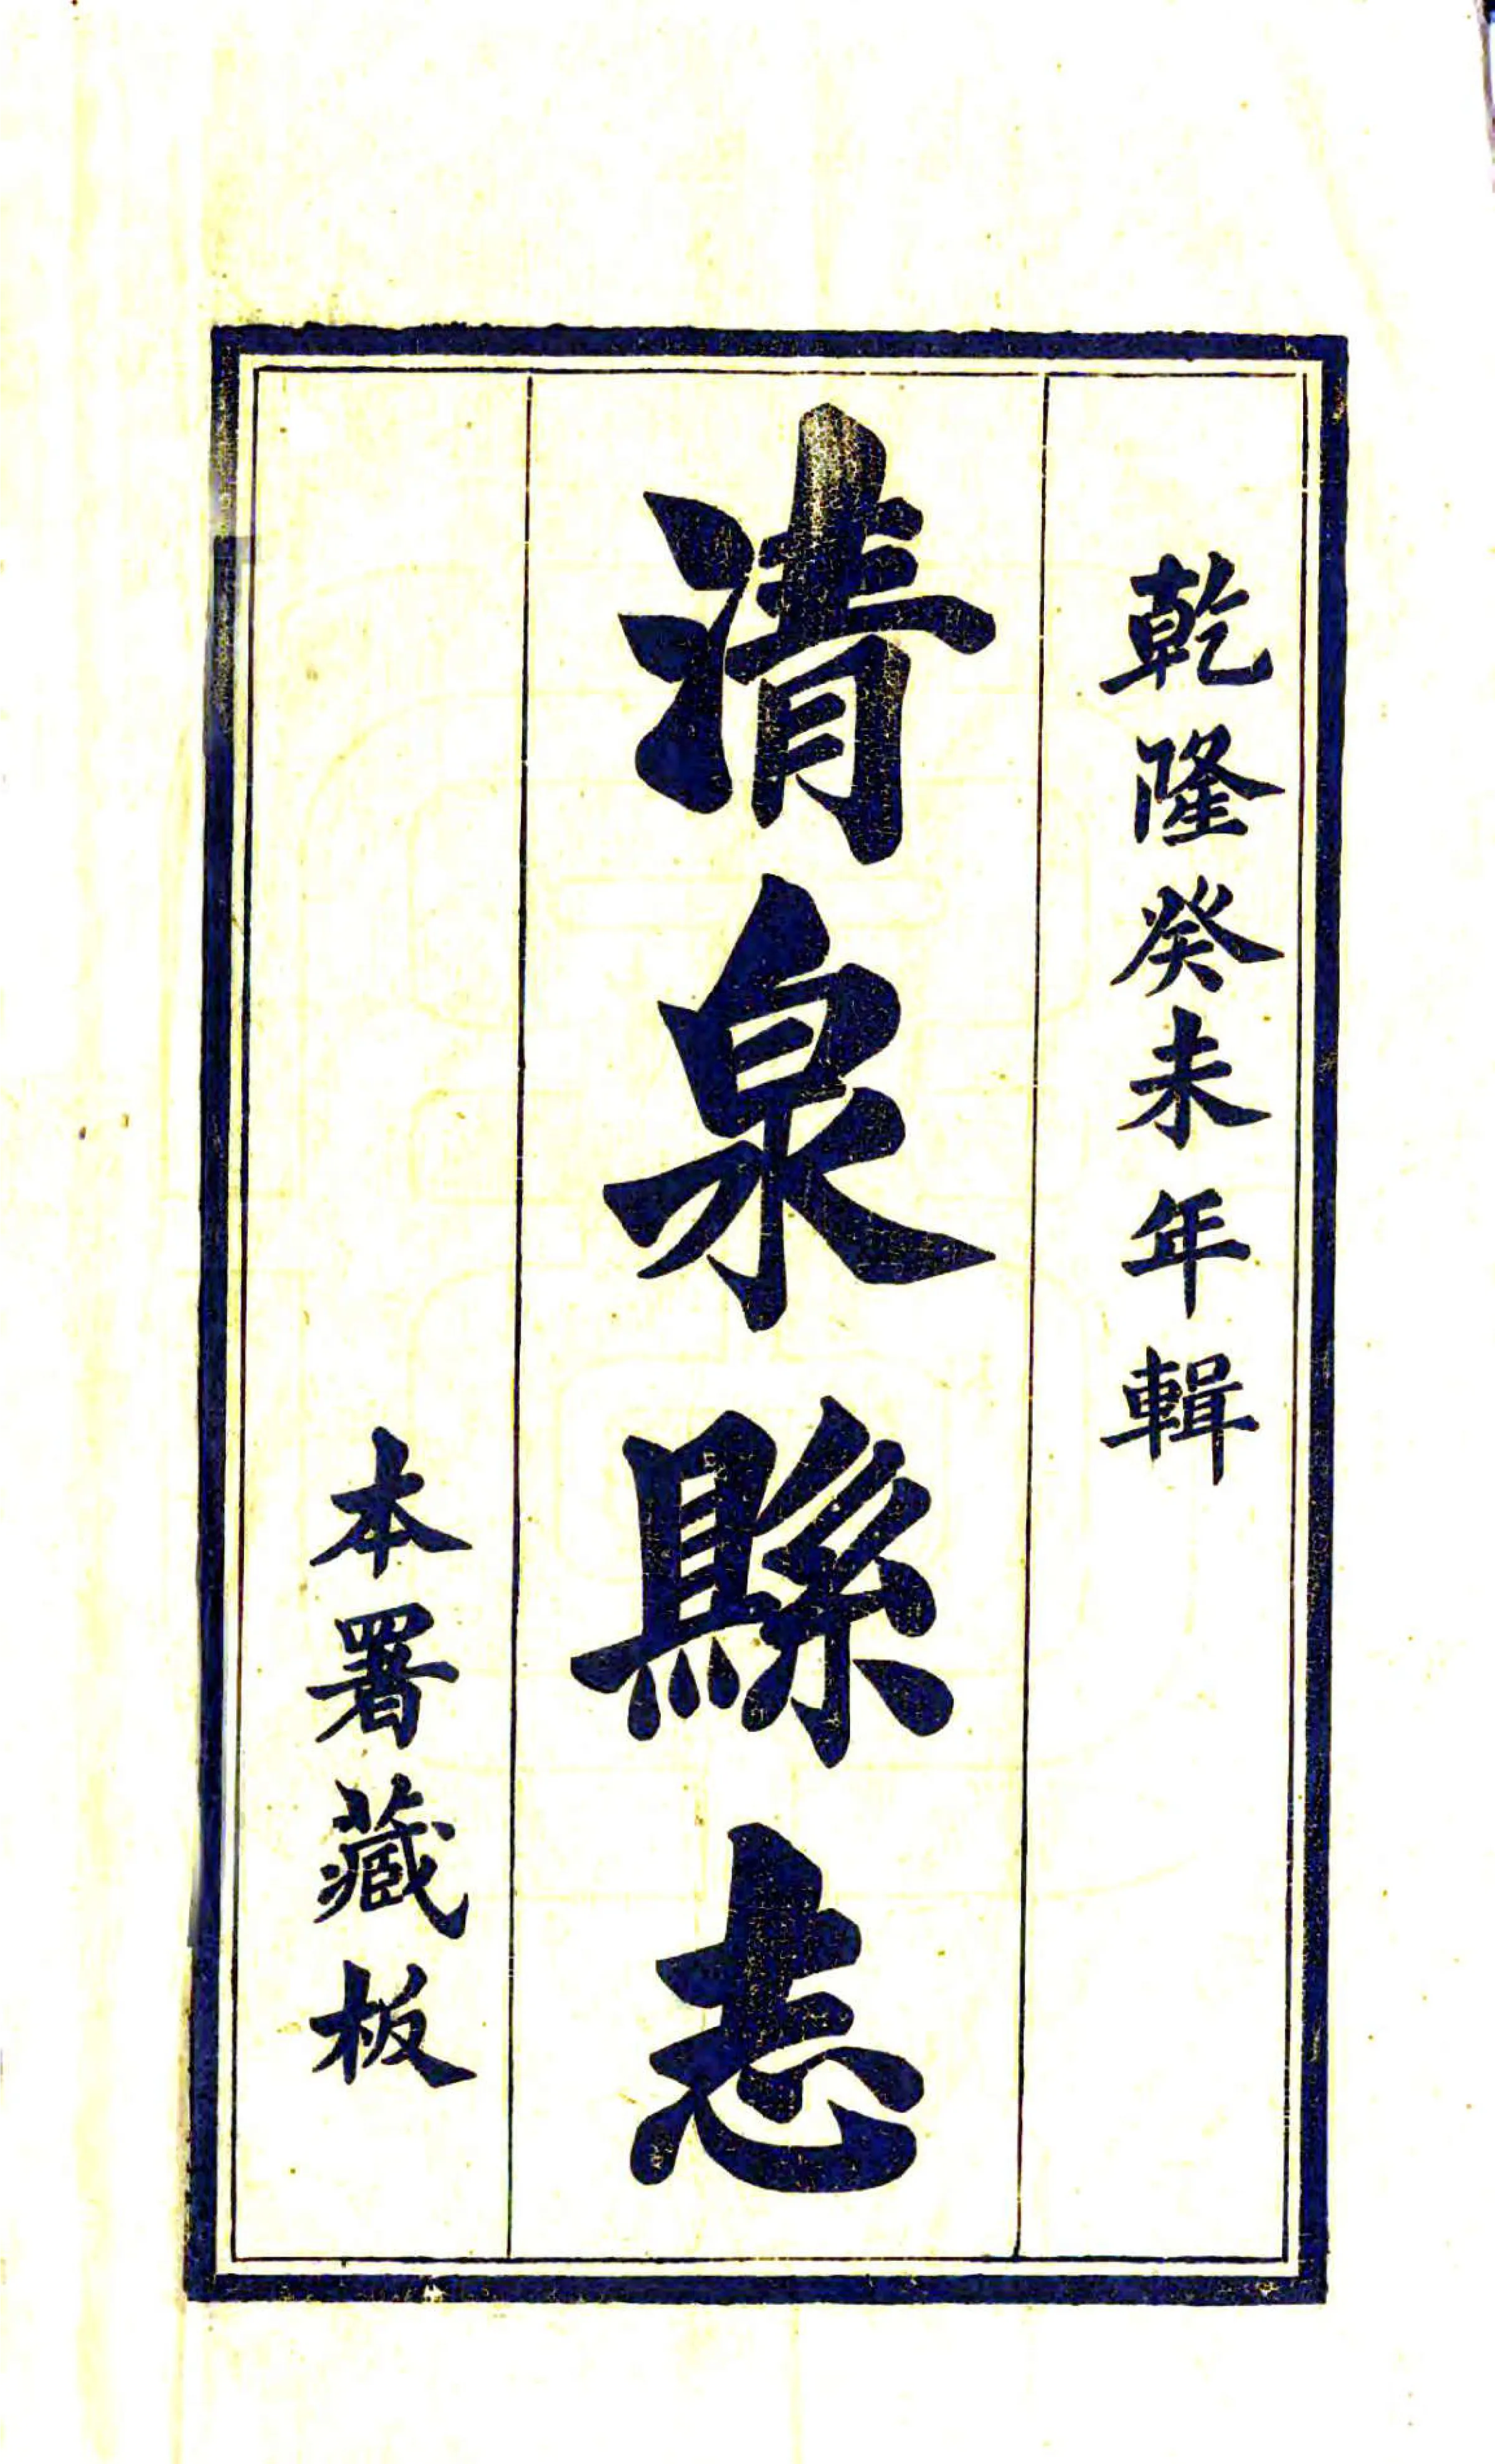 乾隆癸未年輯
清泉縣志
本署藏板